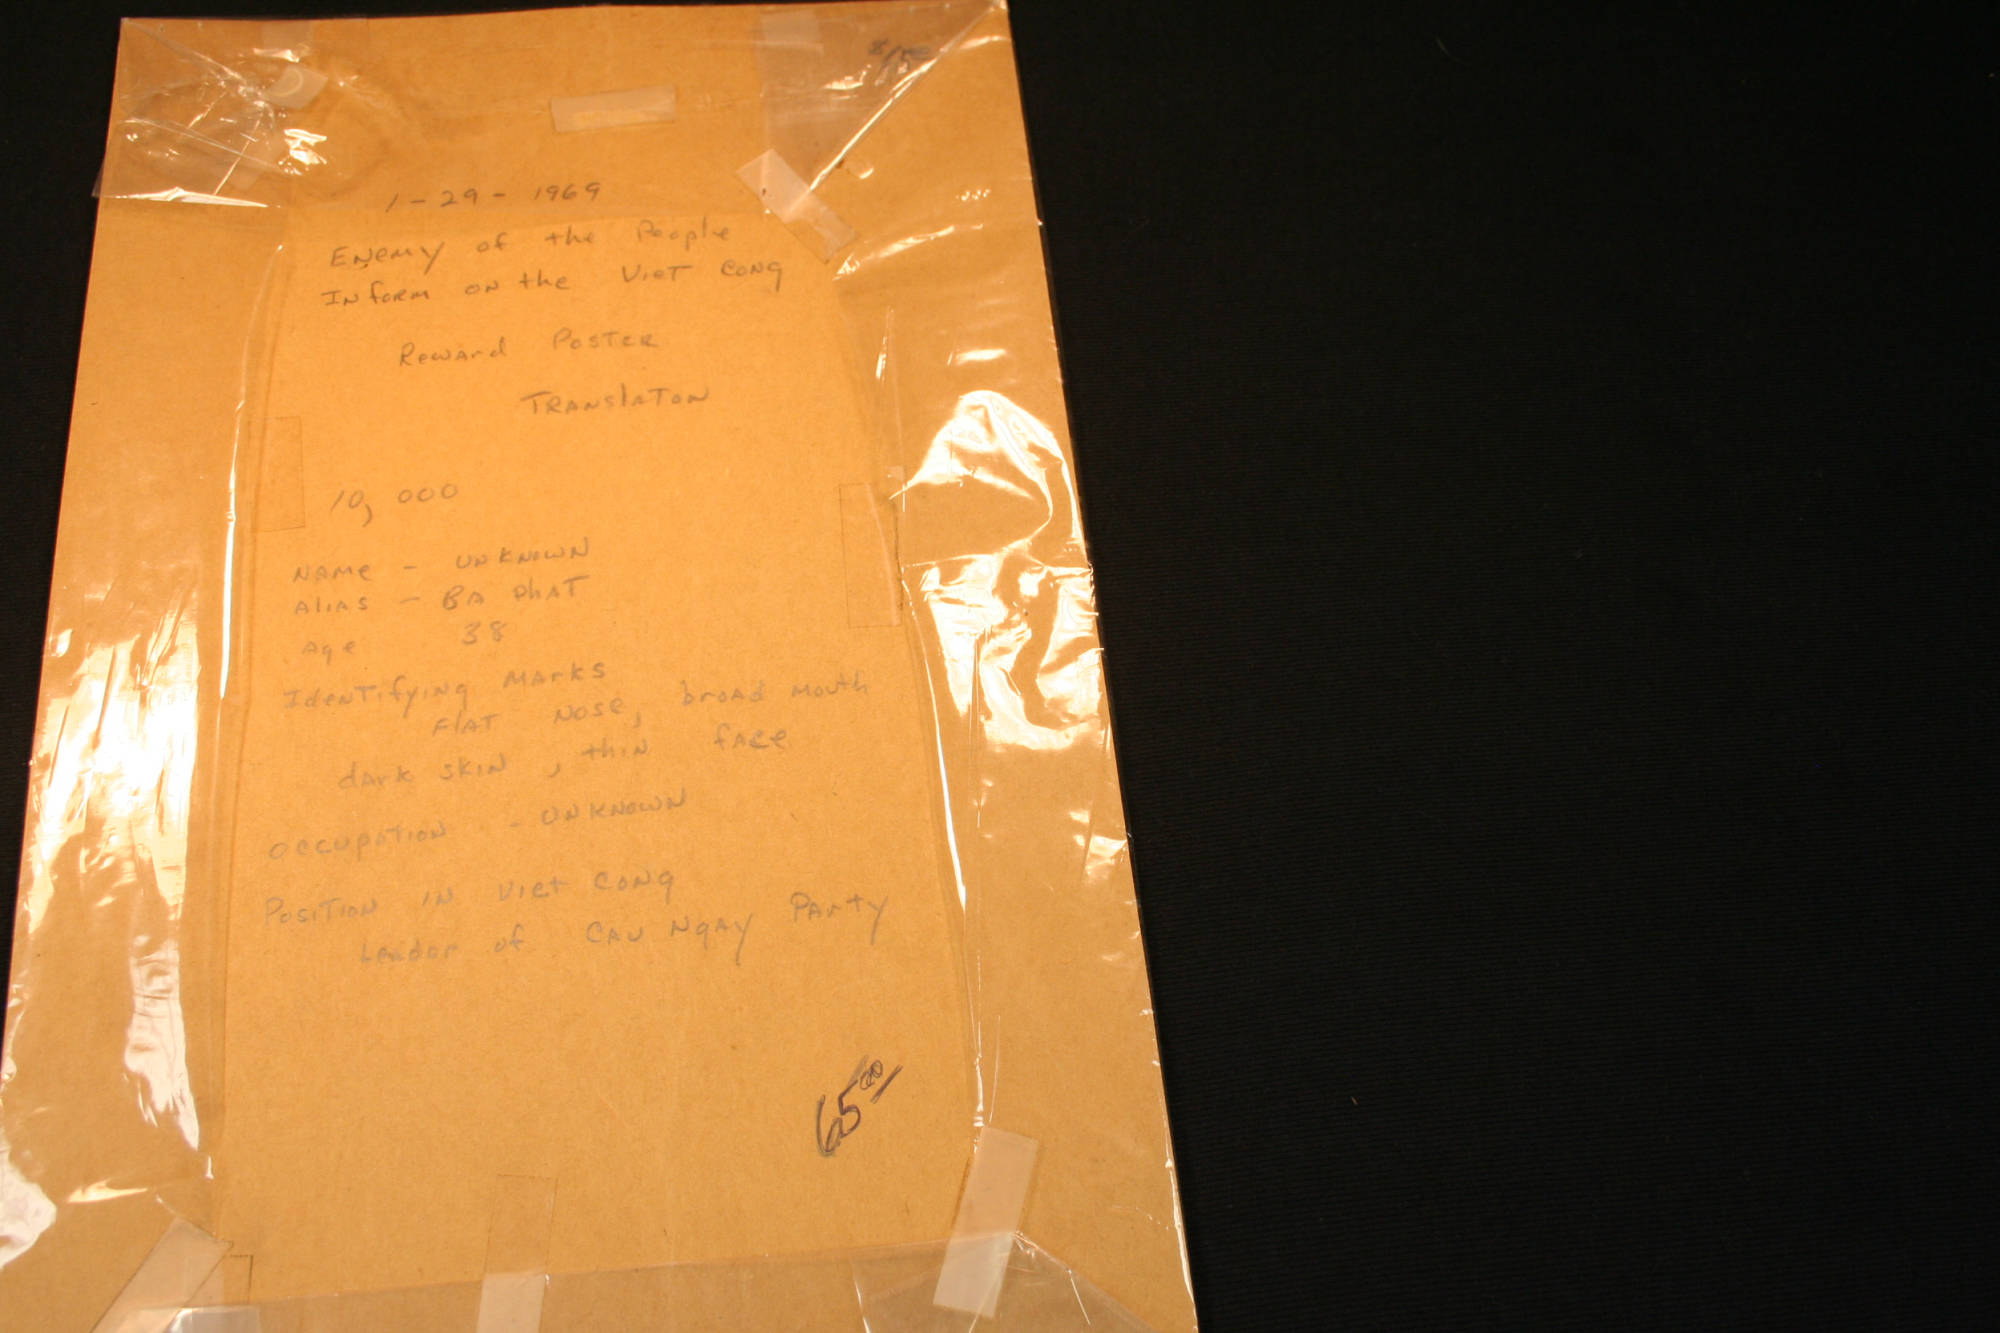 1-29-1969
Enemy of the People
Inform on the Viet Cong
Reward Poster
Translaton
10,000
Name - unknown
Alias - Ba Phat
Age 38
Identifying Marks
Flat Nose, broad mouth
dark skin, thin face
Occupation - unknown
Position in Viet Cong
Leader of Cau Ngay Party
65.00